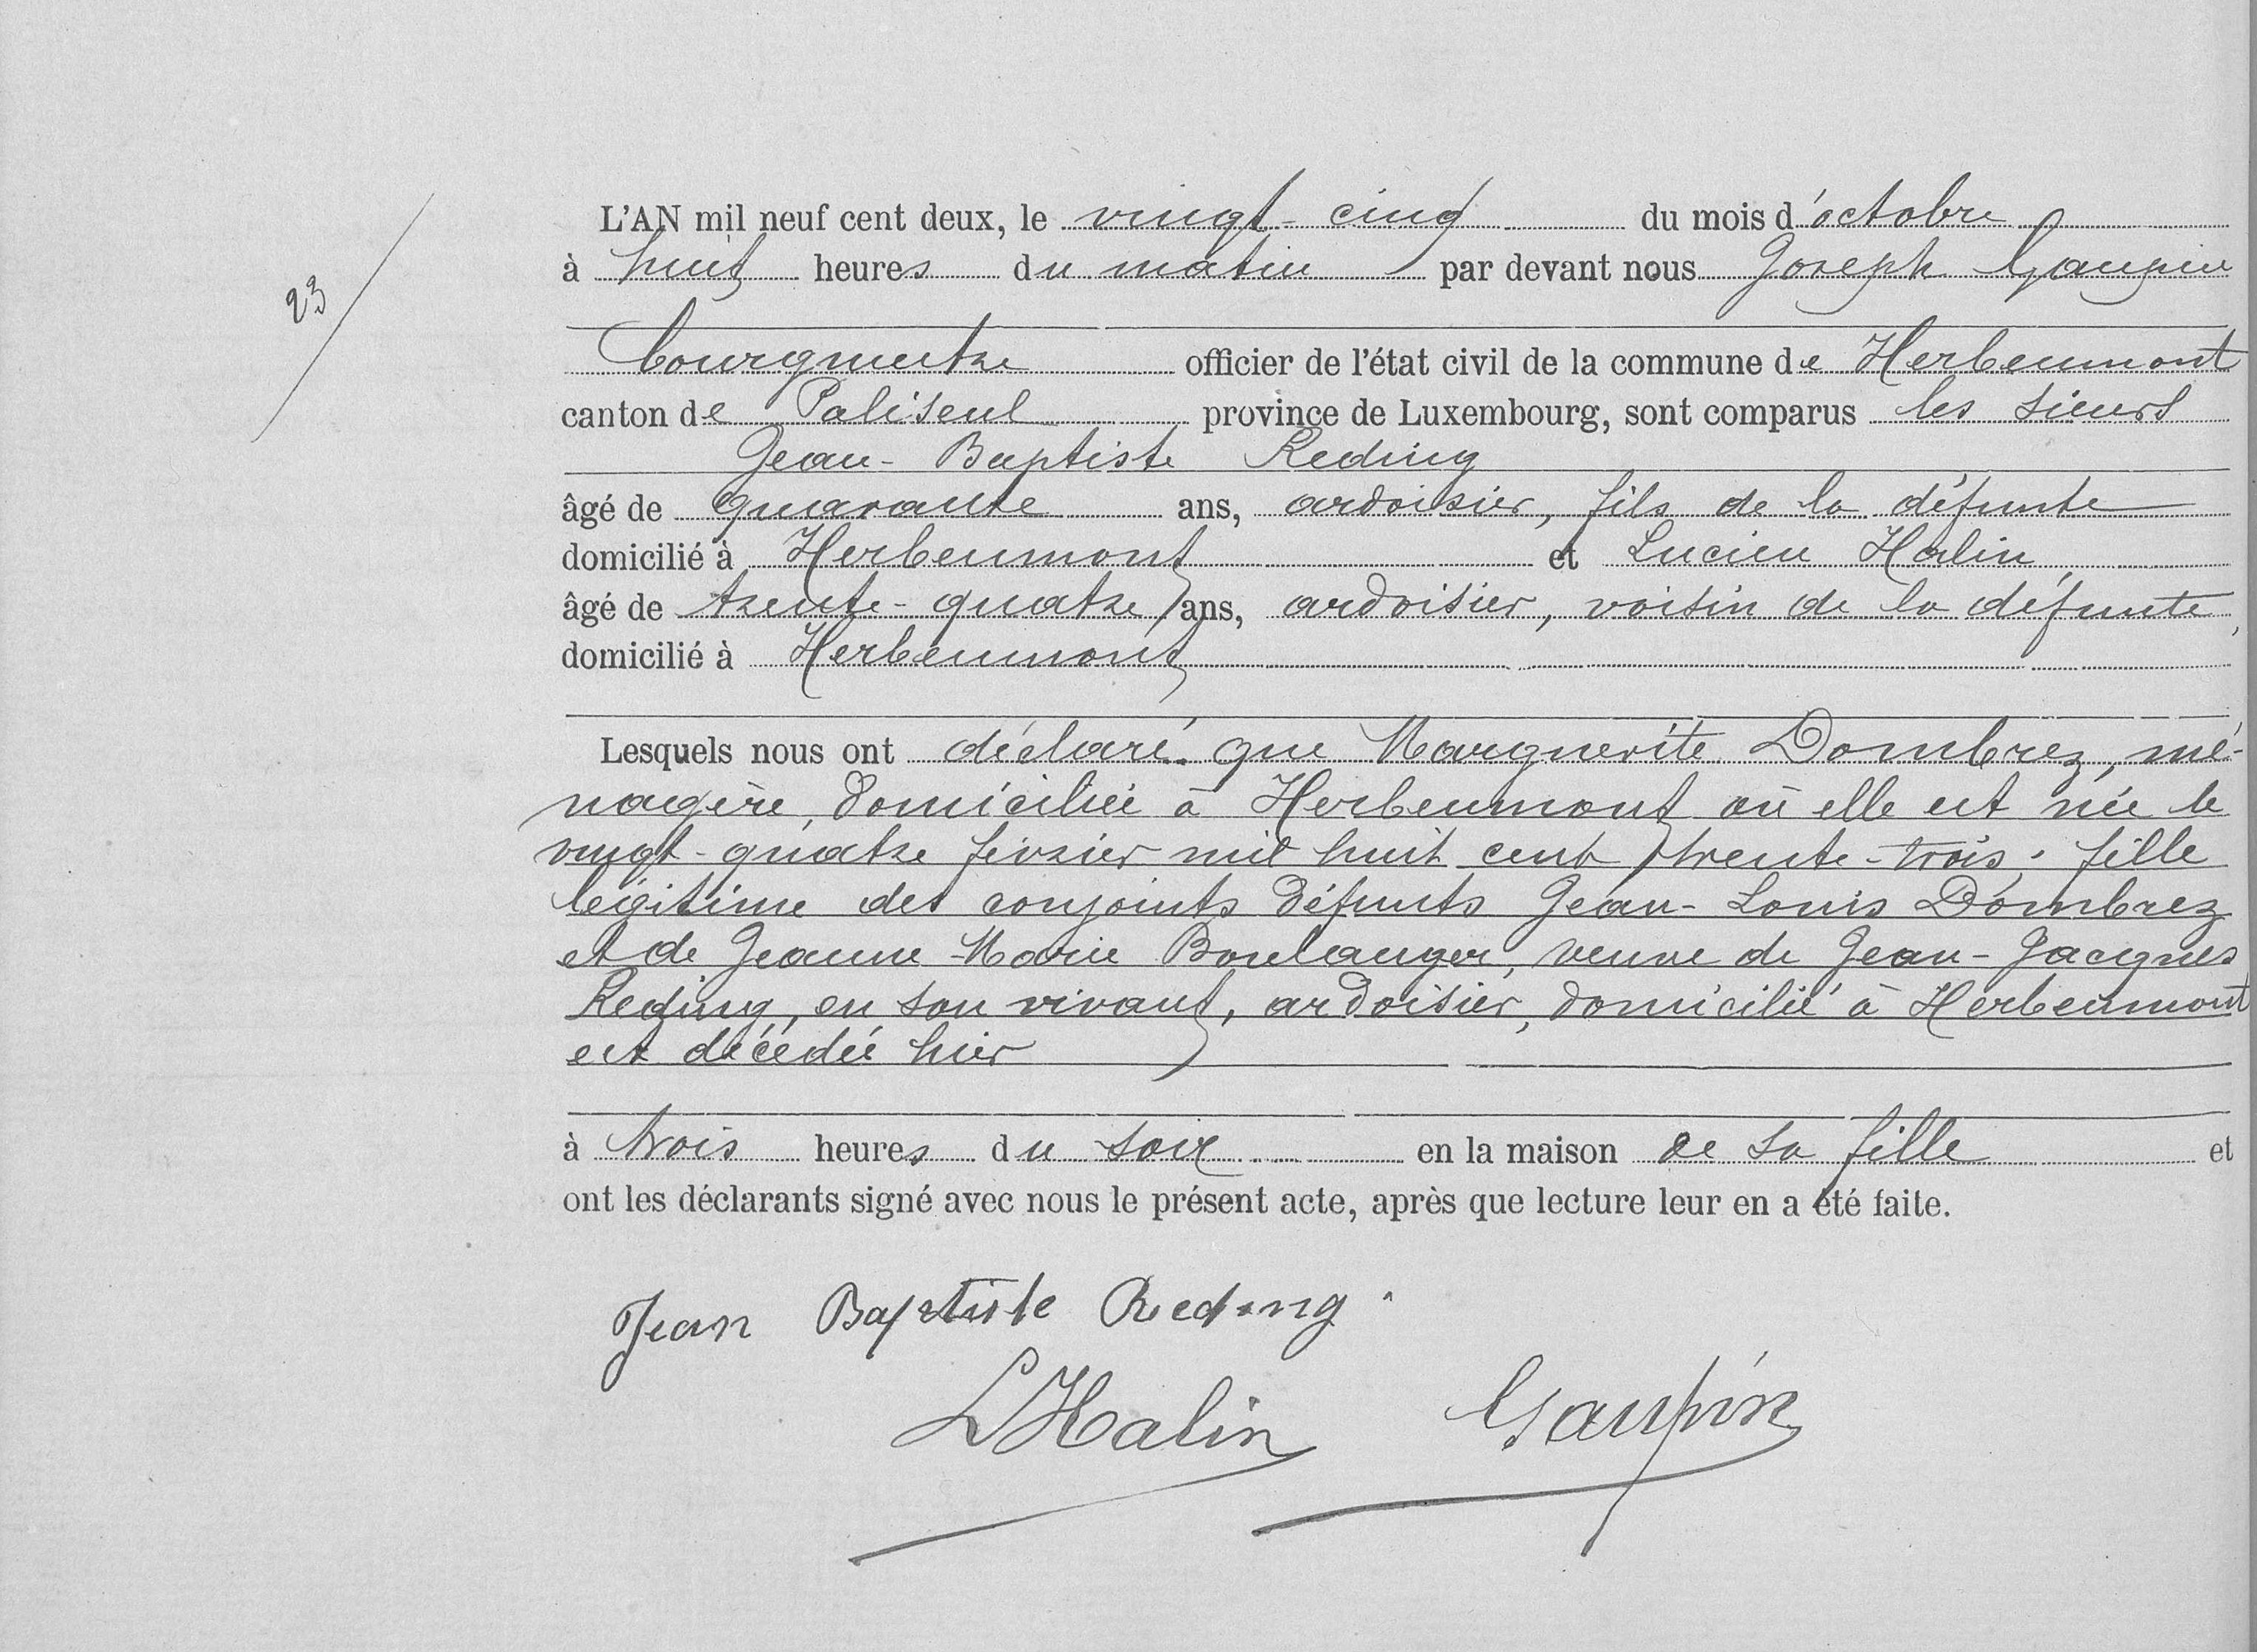 L'AN mil neuf cent deux, le vingt-cinq du mois d'octobre
23
à huit heures du matin par devant nous Joseph Gaupin
bourgmestre officier de l'état civil de la commune de Herbeumont
canton de Paliseul province de Luxembourg, sont comparus les sieurs
Jean-Baptiste Reding
âgé de quarante ans, ardoisier, fils de la défunte
domicilié à Herbeumont et Lucien Halin
âgé de trente-quatre ans, ardoisier, voisin de la défunte,
domicilié à Herbeumont
Lesquels nous ont déclaré que Marguerite Dombrez, mé-
nagère, domiciliée à Herbeumont où elle est née le
vingt-quatre février mil huit cent trente-trois, fille
légitime des conjoints défunts Jean-Louis Dombrez
et de Jeanne-Marie Boulanger, veuve de Jean-Jacques
Reding, en son vivant, ardoisier, domicilié à Herbeumont
est décédée hier
à trois heures du soir en la maison de sa fille et
ont les déclarants signé avec nous le présent acte, après que lecture leur en a été faite.
Jean Baptiste Reding
LHalin Gaupin